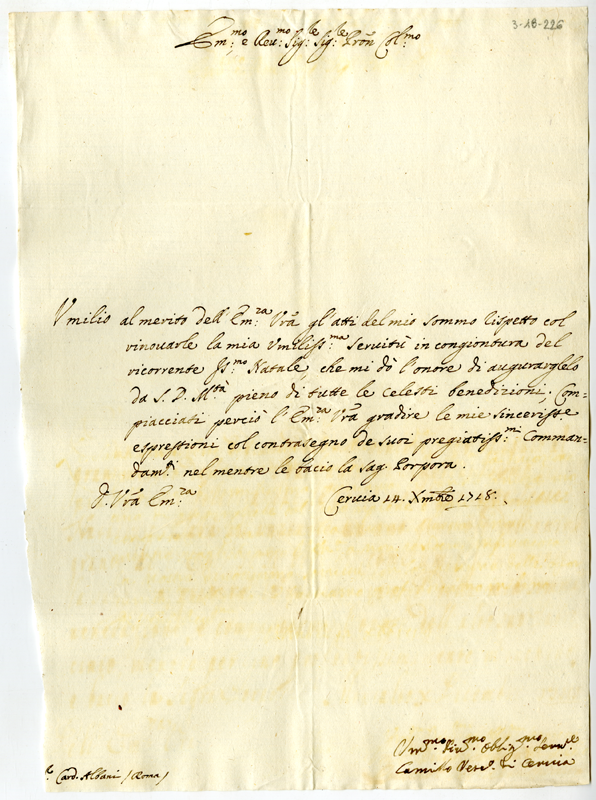 3-18-226
Em:mo e Reu:mo Sig:le Sig:le Pron Col:mo
Vmilio al merito dell' Em:za Vrã gl'atti del mio sommo rispetto col
rinouarle la mia Vmiliss:ma seruitù in congiontura del
ricorrente Ss:mo Natale, che mi dò l'onore di augurarglelo
da S. D. Mtà pieno di tutte le celesti benedizioni; Com-
piacciati perciò l'Em:za Vrã gradire le mie sinceriss:e
espressioni col contrasegno de suoi pregiatiss:mi Comman-
dam:ti nel mentre le bacio la sag: Porpora.
D. Vrã Em:za
Ceruia 14. Xmbre 1718.
Vm:mo Diu:mo Oblig:mo Seru:e
Camillo Vesc:o di Ceruia
Card. Albani (Roma)